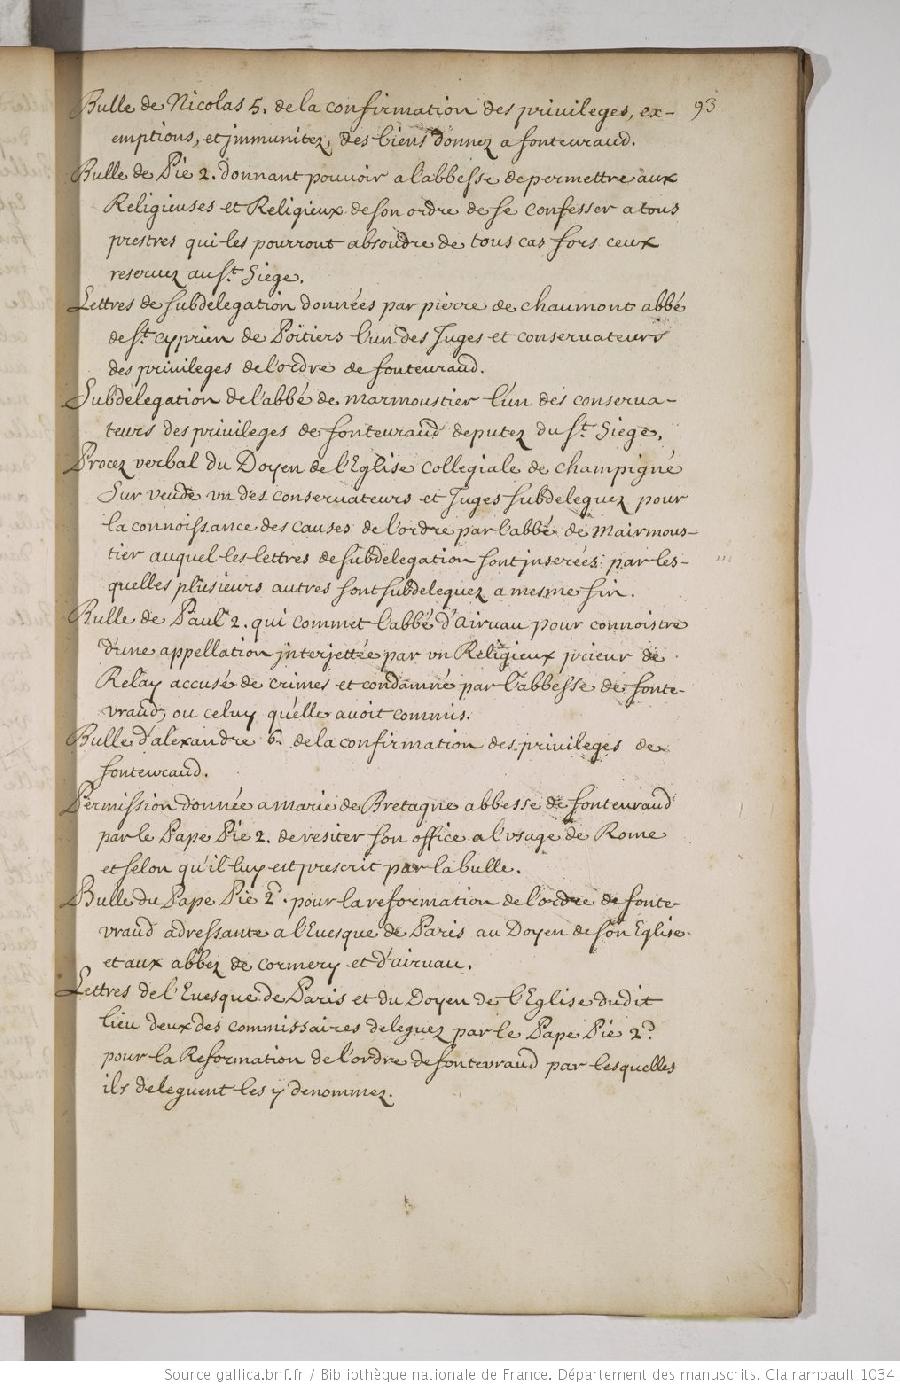 93
Bulle de Nicolas 5. de la confirmation des privileges, ex-
emptions, et jmmunitez, des biens donnez a fonteuraud.
Bulle de Pie 2. donnant pouvoir a l'abbesse de permettre aux
Religieuses et Religieux de son ordre de se confesser a tous
prestres qui les pourront absoudre de tous cas fors ceux
reseruez au St. Siege.
Lettres de subdelegation données par pierre de chaumont abbé
de St. cyprien de Poitiers l'un des Juges et conservateurs
des privileges de l'ordre de fonteuraud.
Subdelegation de l'abbé de marmoustier l'un des conserva-
teurs des privileges de fonteuraud deputez du St. Siege.
Procez verbal du Doyen de l'Eglise collegiale de champigné
Sur vende vn des conseruateurs et Juges subdeleguez pour
la connoissance des causes de l'ordre par l'abbé de Mairmous-
tier auquel les lettres de subdelegation sont jnserées par les-
quelles plusieurs autres sont subdeleguez a mesme fin.
Bulle de Paul 2. qui commet l'abbé d'airuau pour connoistre
d'une appellation jnterjettée par vn Religieux prieur de
Relay accusé de crimes et condamné par l'abbesse de fonte-
vraud, ou celuy qu'elle auoit commis.
Bulle d'alexandre 6. de la confirmation des privileges de
fonteuraud.
Permission donnée a marie de Bretagne abbesse de fonteuraud
par le Pape Pie 2. de resiter son office a l'vsage de Rome
et selon qu'il luy est prescrit par la bulle.
Bulle du Pape Pie 2d. pour la reformation de l'ordre de fonte-
vraud adressante a l'Euesque de Paris au Doyen de son Eglise
et aux abbez de cormery et d'airuau.
Lettres de l'Euesque de Paris et du Doyen de l'Eglise dudit
lieu deux des commissaires deleguez par le Pape Pie 2d.
pour la Reformation de l'ordre de fontevraud par lesquelles
ils deleguent les y denommez.
Source gallica.bnf.fr / Bibliothèque nationale de France. Département des manuscrits. Clairambault 1034